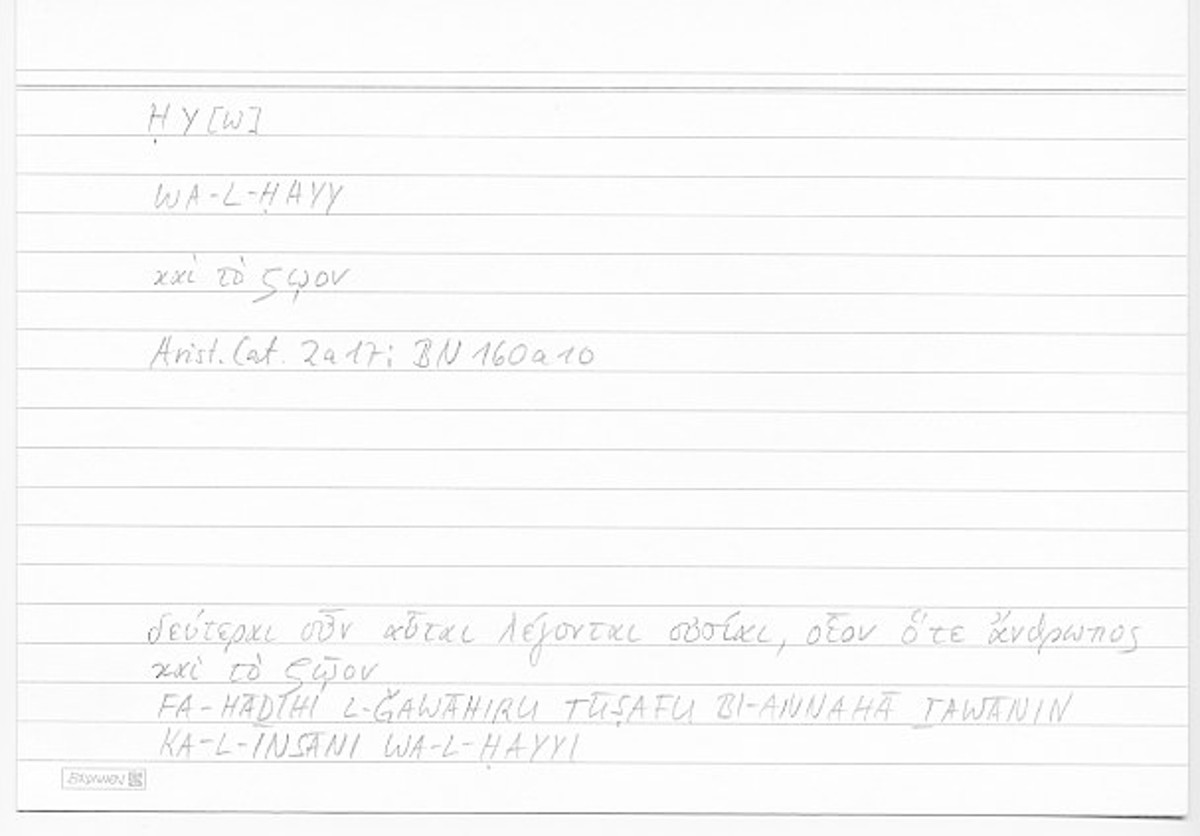 ḤY[W]
WA-L-ḤAYY
καὶ τὸ ζῳον
Arist. Cat. 2a17; BN 160a10
δεύτεραι οὖν αὗται λέγονται οὐσίαι, οἷον ὅ τε ἄνθρωπος
καὶ τὸ ζῷον
FA-HĀḎIHI L-ǦAWĀHIRU TŪṢAFU BI-ANNAHĀ ṮAWĀNIN
KA-L-INSĀNI WA-L-ḤAYYI
BRUNNEN